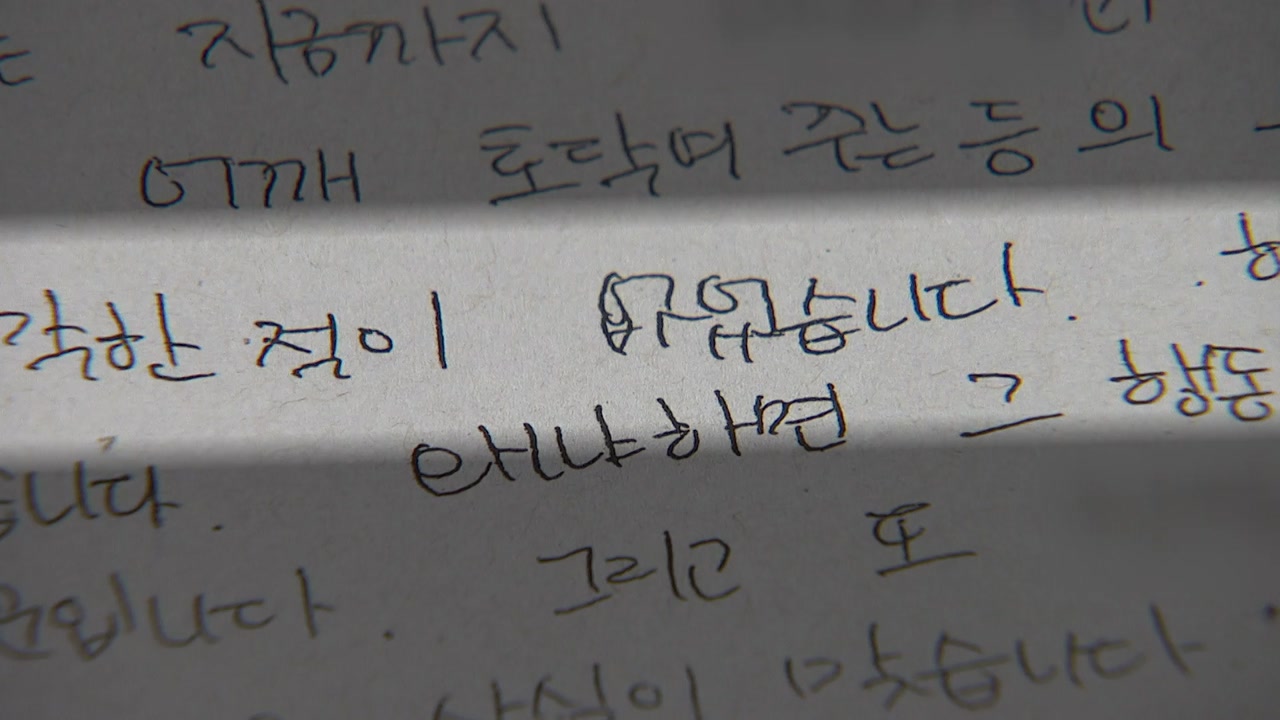 지금까지
어깨 토닥여 주는 등의
각한 적이 없습니다.
습니다. 왜냐하면 그 행동
입니다. 그리고 또
사실이 맞습니다